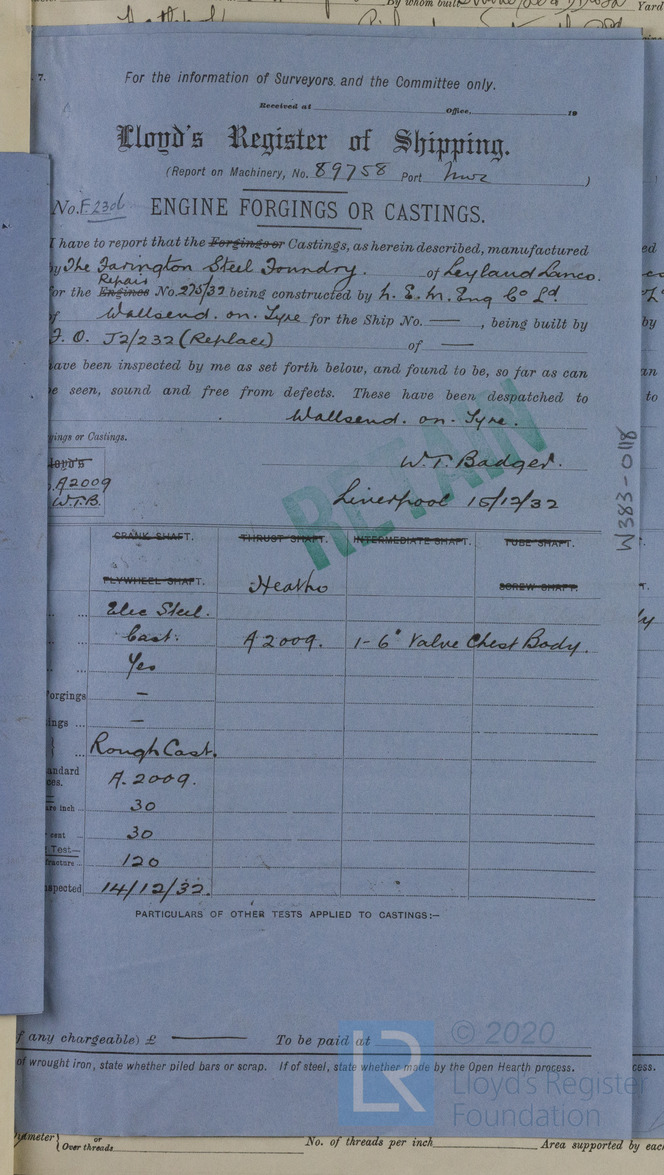 By whom built
Yard
7.
For the information of Surveyors and the Committee only.
Received at Office, 19
Lloyd's Register of Shipping.
(Report on Machinery, No. 89758 Port Nwc )
No. F.2306 ENGINE FORGINGS OR CASTINGS.
I have to report that the Forgings or Castings, as herein described, manufactured
by The Farington Steel Foundry. of Leyland Lancs.
Repair
for the Engines No. 275/32 being constructed by N. E. M. Eng Co Ld
of Wallsend. on. Tyne for the Ship No. — , being built by
F. O. J2/232 (Replace) of —
have been inspected by me as set forth below, and found to be, so far as can
be seen, sound and free from defects. These have been despatched to
Wallsend. on. Tyne.
gings or Castings.
RETAIN
W.T. Badger.
Lloyd's
A2009
W.T.B.
Liverpool 15/12/32
W383-0118
CRANK SHAFT. THRUST SHAFT. INTERMEDIATE SHAFT. TUBE SHAFT.
FLYWHEEL SHAFT. Heat No SCREW SHAFT.
Elec Steel.
Cast. A2009. 1-6" Valve Chest Body.
Yes
orgings –
ings ... –
Rough Cast.
andard
ces. A. 2009.
are inch 30
cent 30
Test—
fracture 120
spected 14/12/32.
PARTICULARS OF OTHER TESTS APPLIED TO CASTINGS:—
f any chargeable) £ — To be paid at
of wrought iron, state whether piled bars or scrap. If of steel, state whether made by the Open Hearth process.
cess.
© 2020
LR
Lloyd's Register
Foundation
iameter or
Over threads No. of threads per inch Area supported by each